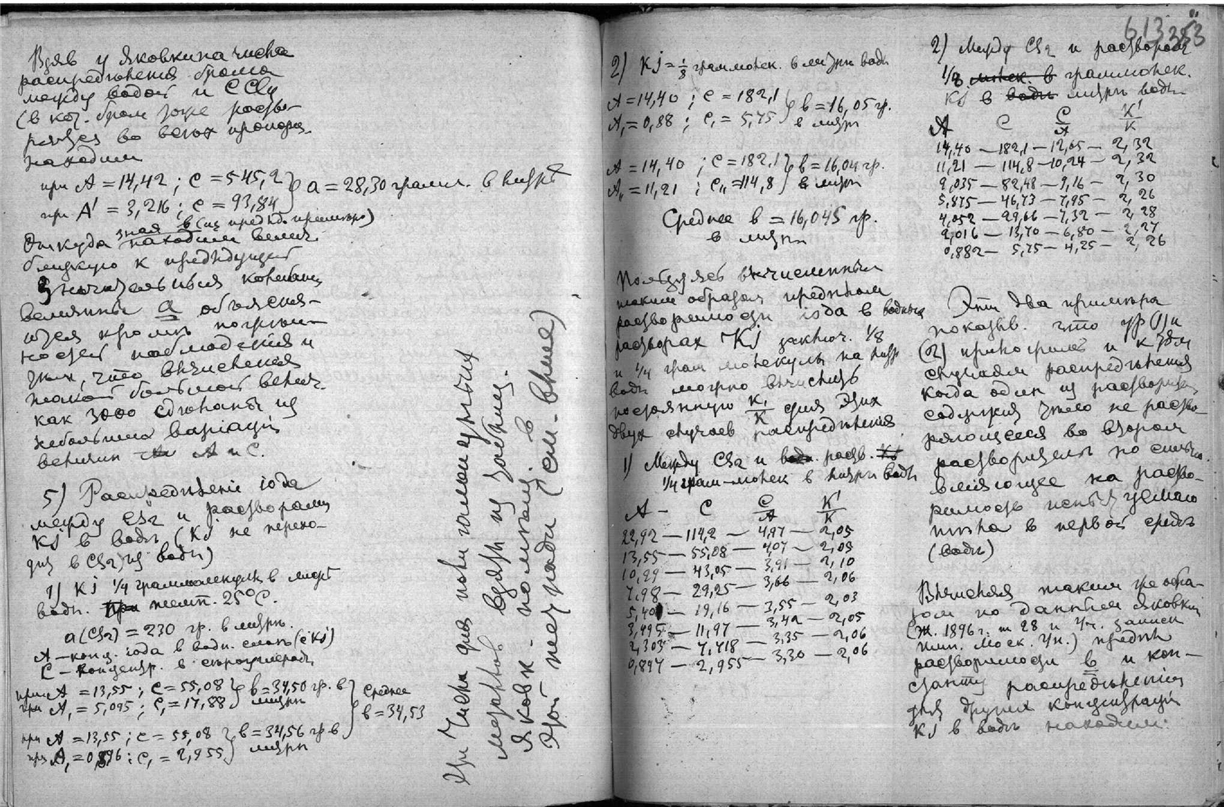 Взяв у Яковкина числа
распределения брома
между водой и CCl4
(в кот. бром тоже раство-
ряется во всех пропорц.
находим
при A = 14,42 ; C = 545,2 } a = 28,30 грамм. в литре
при A' = 3,216 ; C = 93,84
зная в (из предыд. примера)
Откуда находим велич.
близкую к предыдущей
Значительные колебания
величины a объясня-
ются кроме погреш-
ностей наблюдения и
тем, что вычисления
такой большой велич.
как 3000 сделаны из
небольших вариаций
величин A и C.
5) Распределение iода
между CS2 и растворами
KJ в воде (KJ не перехо-
дит в CS2 из воды)
1) KJ 1/4 граммолекул. в литре
воды. При темп. 25°C.
a (CS2) = 230 гр. в литре.
A – конц. iода в водн. слое (с KJ)
C – концентр. в сероуглероде
при A = 13,55 ; C = 55,08 } b = 34,50 гр. в
при A₁ = 5,095 ; C₁ = 17,88 } литре
Среднее
b = 34,53
при A = 13,55 ; C = 55,08 } b = 34,56 гр в
при A₁ = 0,896 ; C₁ = 2,955 } литре
Эти числа для
взяты из таблиц.
Яковкина
(см. выше)
613 353
2) KJ = 1/8 граммолек. в литре воды
A = 14,40 ; C = 182,1 } b = 16,05 гр.
A₁ = 0,88 ; C₁ = 5,75 } в литре
A = 14,40 ; C = 182,1 } b = 16,04 гр.
A₁ = 11,21 ; C₁₁ = 114,8 } в литре
Среднее b = 16,045 гр.
в литре
Пользуясь вычисленным
таким образом пределом
растворимости iода в водных
растворах KJ заключ. 1/8
и 1/4 грам молекулы на литр
воды можно вычислить
постоянную K₁/K для этих
двух случаев распределения
1) Между CS2 и раств. KJ
1/4 грам-молек в литре воды
A – C C/A K'/K
22,92 – 114,2 – 4,97 – 2,05
13,55 – 55,08 – 4,07 – 2,09
10,99 – 43,05 – 3,91 – 2,10
7,98 – 29,25 – 3,66 – 2,06
5,40 – 19,16 – 3,55 – 2,03
3,495 – 11,97 – 3,42 – 2,05
2,305 – 7,718 – 3,35 – 2,06
0,897 – 2,955 – 3,30 – 2,06
2) Между CS2 и раствором
1/8 молек. в граммолек.
KJ в воды литре воды.
A C C/A K'/K
14,40 – 182,1 – 12,65 – 2,32
11,21 – 114,8 – 10,24 – 2,32
9,035 – 82,48 – 9,16 – 2,30
5,875 – 46,73 – 7,95 – 2,26
4,052 – 29,66 – 7,32 – 2,28
2,016 – 13,70 – 6,80 – 2,27
0,882 – 5,75 – 4,25 – 2,26
Эти два примера
показыв. что ур (1) и
(2) приложимы и к тем
случаям распределения
когда один из растворит.
содержит тело не раство-
ряющееся во втором
растворителе но сильно
влияющее на раство-
римость испытуемаго
тела в первой среде
(воде)
Вычисляя таким же обра-
зом по данным Яковки
(Ж. 1896 г. т 28 и Уч. записи
Имп. Моск. Ун.) предел
растворимости b и кон-
станту распределения
для других концентраций
KJ в воде находим: